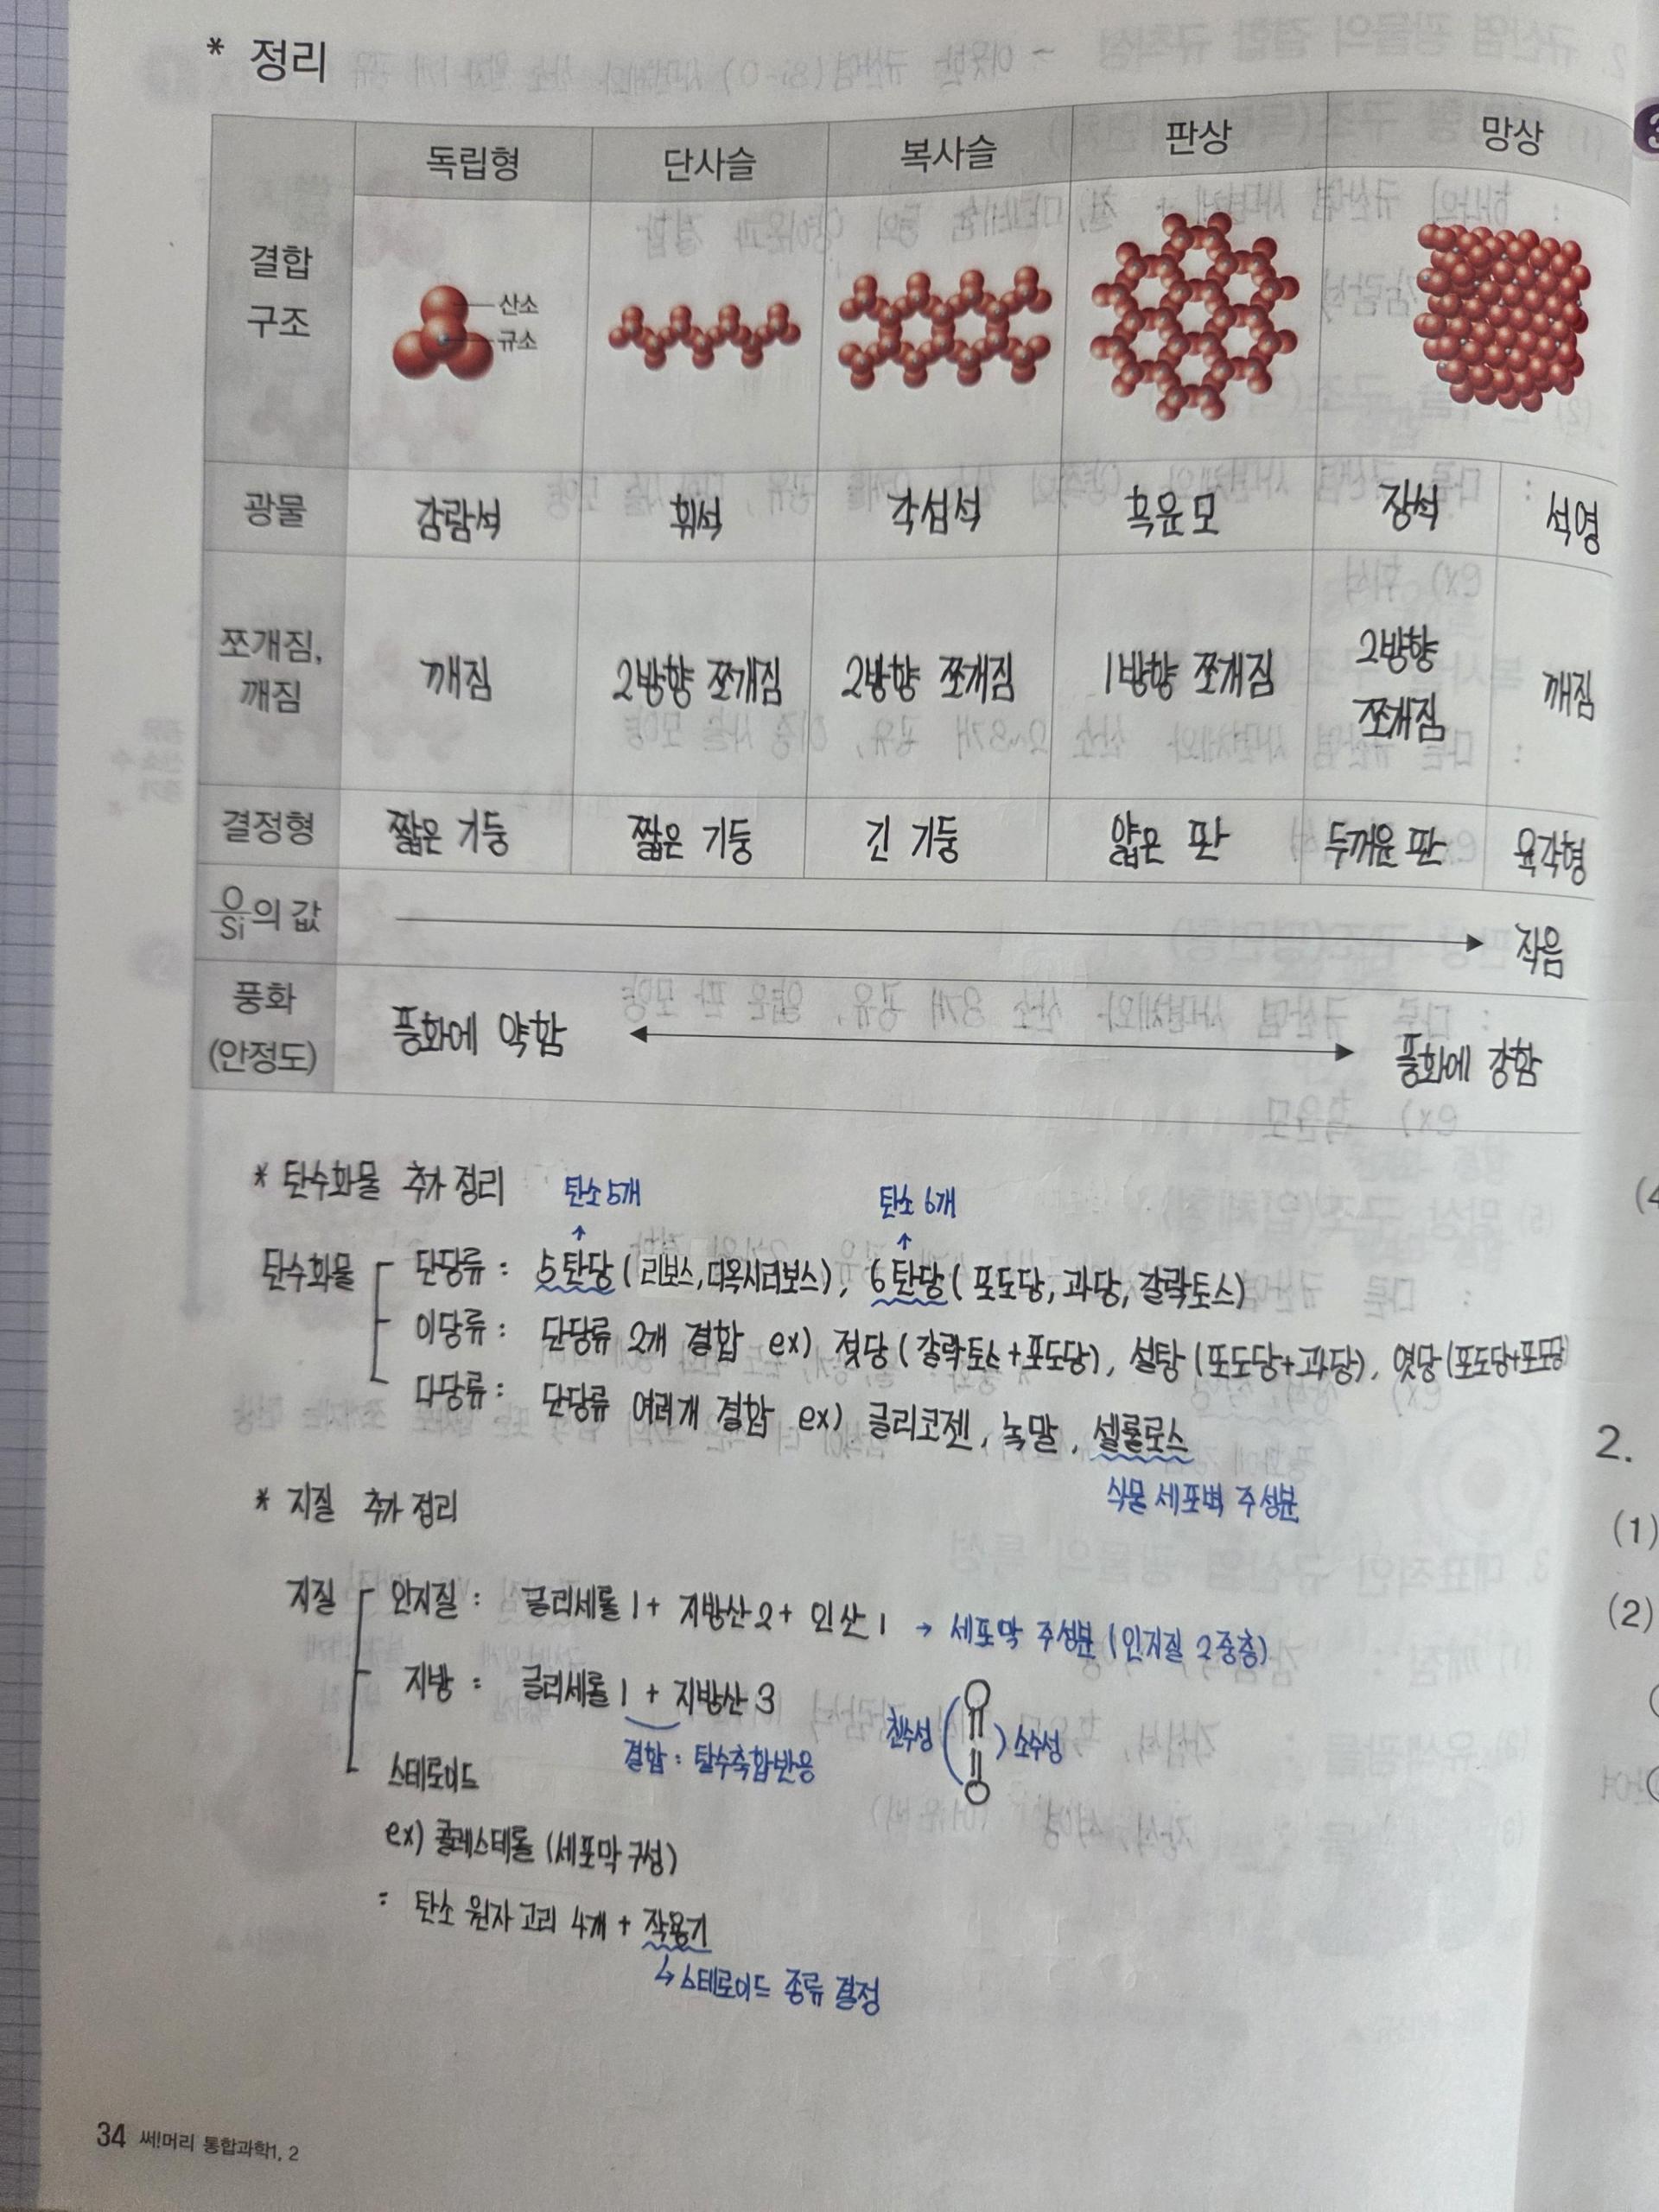 * 정리
독립형 단사슬 복사슬 판상 망상
결합
구조
산소
규소
광물 감람석 휘석 각섬석 흑운모 장석 석영
쪼개짐,
깨짐
깨짐 2방향 쪼개짐 2방향 쪼개짐 1방향 쪼개짐 2방향
쪼개짐
깨짐
결정형 짧은 기둥 짧은 기둥 긴 기둥 얇은 판 두꺼운 판 육각형
O/Si의 값 → 작음
풍화
(안정도)
풍화에 약함 ↔ 풍화에 강함
* 탄수화물 추가 정리
탄소 5개 탄소 6개
↑ ↑
탄수화물 단당류 : 5탄당 (리보스, 디옥시리보스), 6탄당 (포도당, 과당, 갈락토스)
이당류 : 단당류 2개 결합 ex) 젖당 (갈락토스+포도당), 설탕 (포도당+과당), 엿당 (포도당+포도당)
다당류 : 단당류 여러개 결합 ex) 글리코젠, 녹말, 셀룰로스
식물 세포벽 주성분
* 지질 추가 정리
지질 인지질 : 글리세롤 1 + 지방산 2 + 인산 1 → 세포막 주성분 (인지질 2중층)
지방 : 글리세롤 1 + 지방산 3
결합 : 탈수축합반응
친수성 소수성
스테로이드
ex) 콜레스테롤 (세포막 구성)
: 탄소 원자 고리 4개 + 작용기
↳ 스테로이드 종류 결정
34 써!머리 통합과학1, 2
(4
2.
(1)
(2)